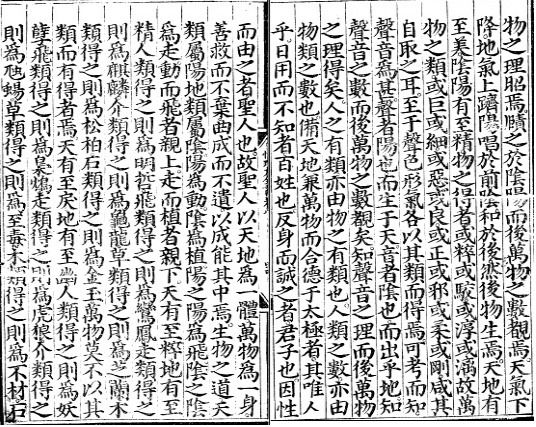 物之理昭焉賾之於陰陽而後萬物之數覩焉天氣下
降地氣上躋陽唱於前陰和於後然後物生焉天地有
至美陰陽有至精物之得者或粹或駁或淳或漓故萬
物之類或巨或細或惡或良或正或邪或柔或剛咸其
自取之耳至于聲色形氣各以其類而得焉可考而知
聲音為甚聲者陽也而生于天音者陰也而出乎地知
聲音之數而後萬物之數覩矣知聲音之理而後萬物
之理得矣人之有類亦由物之有類也人類之數亦由
物類之數也備天地兼萬物而合德于太極者其唯人
乎日用而不知者百姓也反身而誠之者君子也因性
而由之者聖人也故聖人以天地為一體萬物為一身
善救而不棄曲成而不遺以成能其中焉生物之道天
類屬陽地類屬陰陽為動陰為植陽之陽為飛陰之陰
為走動而飛者親上走而植者親下天有至粹地有至
精人類得之則為明哲飛類得之則為鸞鳳走類得之
則為麒麟介類得之則為龜龍草類得之則為芝蘭木
類得之則為松柏石類得之則為金玉萬物莫不以其
類而有得者焉天有至戾地有至幽人類得之則為妖
孽飛類得之則為梟鴆走類得之則為虎狼介類得之
則為虺蜴草類得之則為至毒木類得之則為不材石